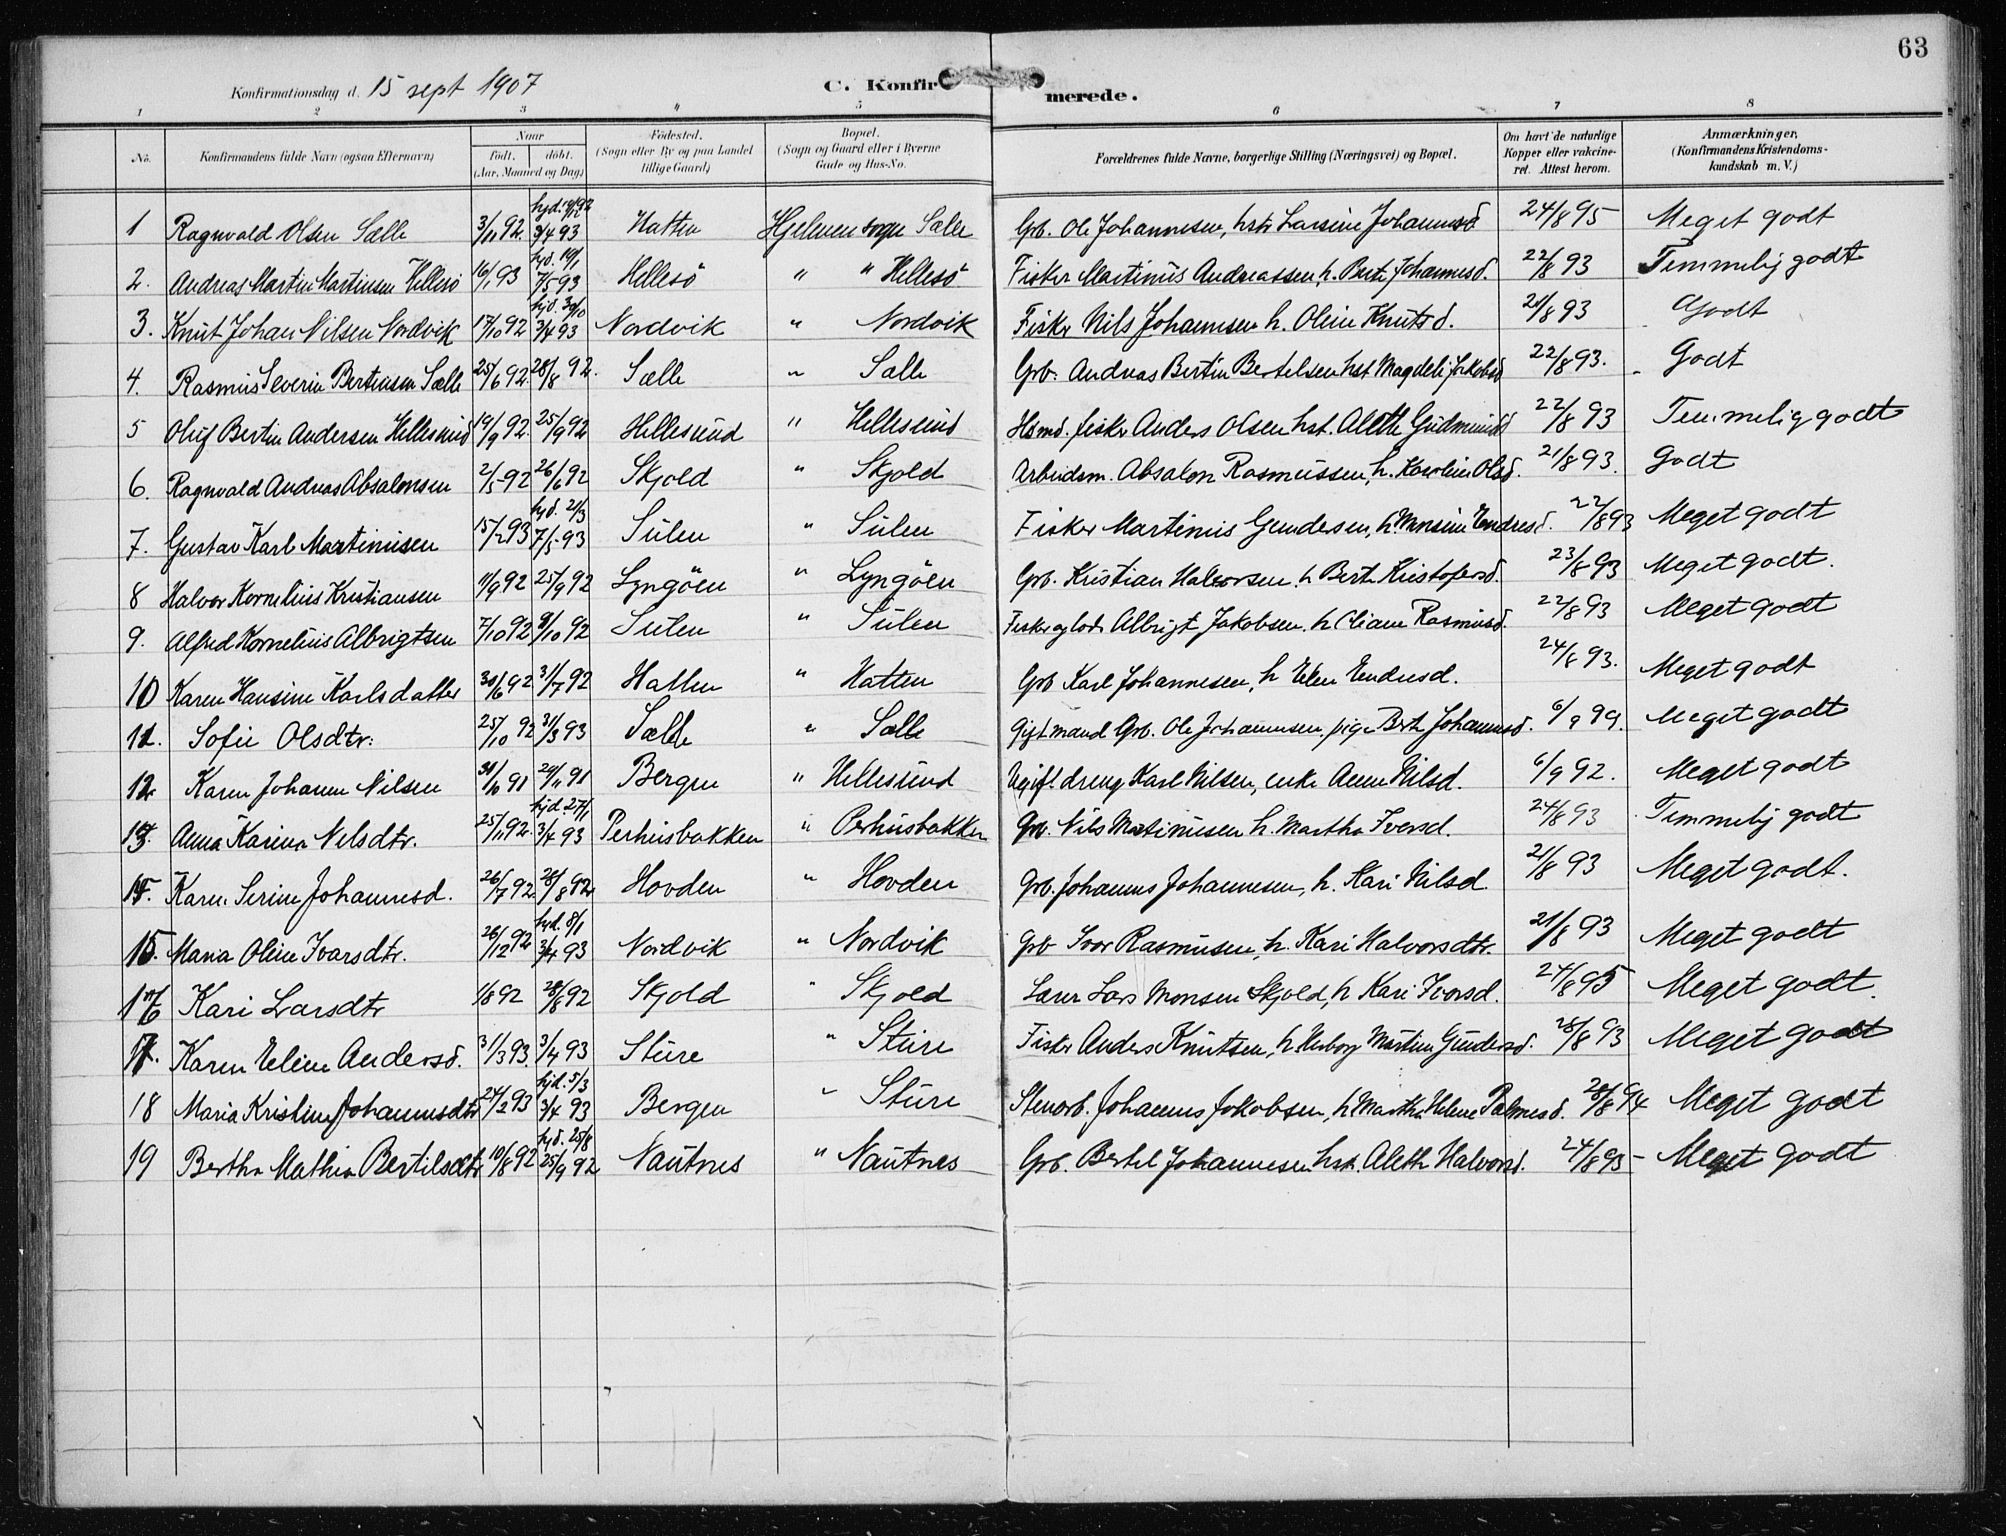 63
Konfirmationsdag d. 15 sept 1907 C. Konfirmerede.
1 2 3 4 5 6 7 8
No. Konfirmandens fulde Navn (ogsaa Efternavn) Naar født. døbt. (Aar, Maaned og Dag) Fødested. (Sogn eller By og paa Landet tillige Gaard) Bopæl. (Sogn og Gaard eller i Byerne Gade og Hus-No. Forældrenes fulde Navne, borgerlige Stilling (Næringsvei) og Bopæl. Om havt de naturlige Kopper eller vakcineret. Attest herom. Anmærkninger, (Konfirmandens Kristendomskundskab m. V.)
1 Ragnvald Olsen Sælle 3/11 92. 3/4 93 Hatten Hjelmen sogn Sælle Grb. Ole Johannesen, hstr Larsine Johannesd 24/8 95 Meget godt
2. Andreas Martin Martinsen Hellesö 16/1 93 hjd. 19/1 7/5 93 Hellesö " " Hellesö Fisker Martinus Andreassen, h. Berte Johannesd. 22/8 93 Temmelig godt
3. Knut Johan Nilsen Nordvik 17/10 92 hjd. 30/10 3/4 93 Nordvik " Nordvik Fisker Nils Johannesen h. Oline Knutsd. 21/8 93 Godt
4. Rasmus Severin Bertinsen Sælle 25/6 92 28/8 92. Sælle " Sælle Grb. Andreas Bertin Bertelsen hst Magdeli Jakobsd 22/8 93. Godt
5 Oluf Bertin Andersen Hellesund 19/9 92. 25/9 92 Hellesund " Hellesund Hsmd. fisker Anders Olsen hst. Alethe Gudmundsd 22/8 93 Temmelig godt
6. Ragnvald Andreas Absalonsen 2/5 92 26/6 92 Skjold " Skjold Arbeidsm. Absalon Rasmussen, h. Karoline Olsd. 21/8 93. Godt
7. Gustav Karl Martinusen 15/2 93 hjd. 2/3 7/5 93 Sulen " Sulen Fisker Martinus Gundersen, h. Monsine Endresd. 22/8 93 Meget godt
8 Halvor Kornelius Kristiansen 11/9 92 25/9 92 Lyngöen " Lyngöen Grb. Kristian Halvorsen. h Berte Kristofersd. 23/8 93 Meget godt.
9. Alfred Kornelius Albrigtsen 7/10 92 9/10 92 Sulen " Sulen Fisker og lods Albrigt Jakobsen. h Oliane Rasmusd. 22/8 93 Meget godt
10 Karen Hansine Karlsdatter 30/6 92 31/7 92 Hatten " Hatten Grb Karl Johannesen, h Elen Endresd. 24/8 93. Meget godt
11. Sofie Olsdtr: 25/10 92 31/3 93 Sælle " Sælle Gift mand Grb. Ole Johannesen, pige Berte Johannesd. 6/9 99. Meget godt
12 Karen Johanne Nilsen 31/10 91 29/11 91 Bergen " Hellesund Ugift dreng Karl Nilsen, enke Anne Nilsd. 6/9 92. Meget godt
13. Anna Karina Nilsdtr. 25/11 92. hjd. 27/1 3/4 93 Perhusbakken " Perhusbakken Grb. Nils Martinusen h. Martha Iversd. 24/8 93 Temmelig godt
Karen Serine Johannesd. 26/7 92 28/8 92 Hovden " Hovden Grb. Johannes Johannesen, h. Kari Nilsd 21/8 93 Meget godt.
15. Maria Oline Ivarsdtr. 26/12 92 hjd. 8/1 3/4 93 Nordvik " Nordvik Grb Ivar Rasmusen, h. Kari Halvorsdtr. 21/8 93 Meget godt
16 Kari Larsdtr 1/8 92 28/8 92 Skjold " Skjold Lærer Lars Monsen Skjold, h Kari Iversd. 24/8 95 Meget godt.
17. Karen Eline Andersd. 31/3 93. 3/4 93 Sture " Sture Fisker Anders Knutsen, h. Herborg Martine Gundersd. 28/8 93 Meget godt
18 Maria Kristine Johannesdtr 24/2 93 hjd. 5/3 3/4 93 Bergen " Sture Stenarb. Johannes Jakobsen, h Martha Helene Palmesd. 28/8 94 Meget godt
19 Bertha Mathia Bertilsdtr 10/8 92 hjd. 25/8 25/9 92 Nautnes " Nautnes Grb. Bertel Johannesen hst. Alethe Halvorsd. 24/8 93 - Meget godt